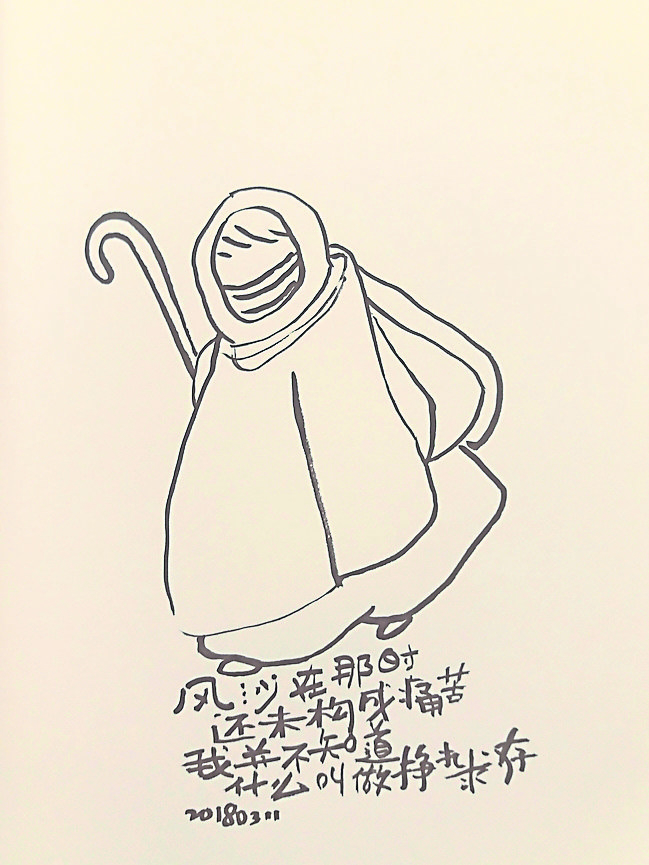 风沙在那时
还未构成痛苦
我并不知道
什么叫做挣扎求存
20180311